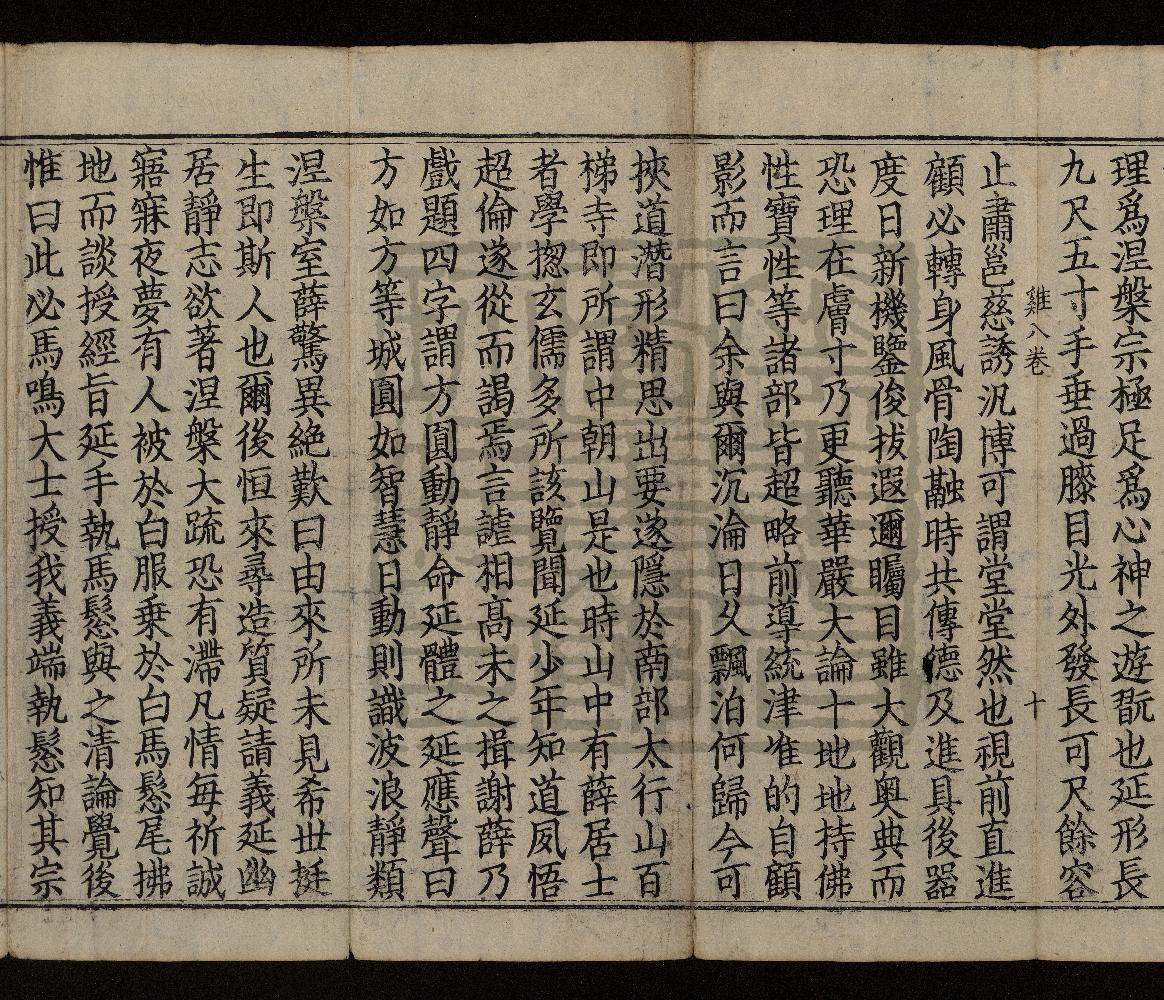 理爲涅槃宗極足爲心神之遊翫也延形長
九尺五寸手垂過膝目光外發長可尺餘容
雞八卷 十
止肅邕慈誘汎博可謂堂堂然也視前直進
顧必轉身風骨陶融時共傳德及進具後器
度日新機鑒俊拔遐邇矚目雖大觀奥典而
恐理在膚寸乃更聽華嚴大論十地地持佛
性寶性等諸部皆超略前導統津准的自顧
影而言曰余與爾沉淪日久飄泊何歸今可
挾道潛形精思出要遂隱於南部太行山百
梯寺即所謂中朝山是也時山中有薛居士
者學揔玄儒多所該覽聞延少年知道夙悟
超倫遂從而謁焉言謔相髙未之揖謝薛乃
戲題四字謂方圓動靜命延體之延應聲曰
方如方等城圓如智慧日動則識波浪靜類
涅槃室薛驚異絶歎曰由來所未見希世挺
生即斯人也爾後恒來尋造質疑請義延幽
居靜志欲著涅槃大䟽恐有滯凡情每祈誠
寤寐夜夢有人被於白服乗於白馬騣尾拂
地而談授經旨延手執馬騣與之清論覺後
惟曰此必馬鳴大士授我義端執騣知其宗